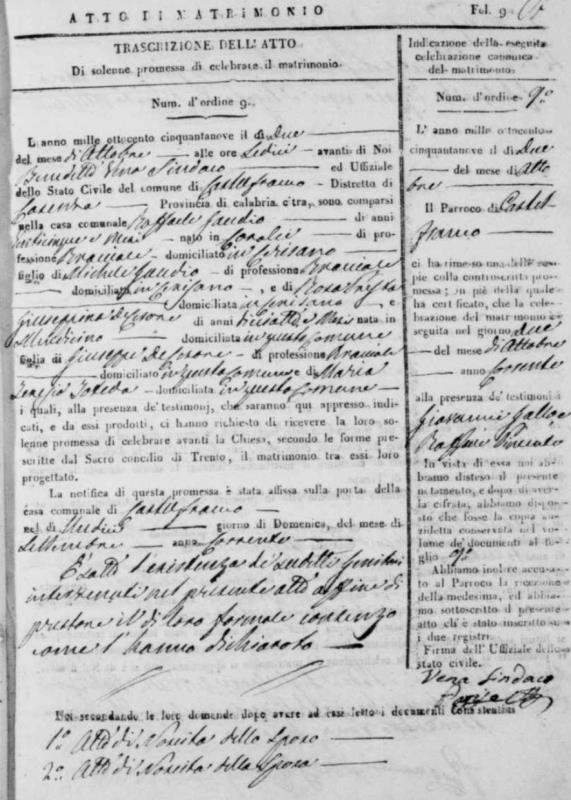 ATTO DI MATRIMONIO
Fol. 9
TRASCRIZIONE DELL'ATTO
Di solenne promessa di celebrare il matrimonio.
Num. d'ordine 9.
L'anno mille ottocento cinquantanove il dì Due
del mese di Ottobre alle ore Sedici avanti di Noi
Benedetto Vena Sindaco ed Uffiziale
dello Stato Civile del comune di Castelfranco Distretto di
Cosenza Provincia di calabria citra, sono comparsi
nella casa comunale Raffaele Gaudio di anni
nato in di pro-
fessione Bracciale domiciliato in Cerisano
figlio di Michele Gaudio di professione Bracciale
domiciliato in Cerisano, e di Rosa
domiciliata in Cerisano, e
Giuseppina De Cesone di anni nata in
Mendicino domiciliata in questo Comune
figlia di Giuseppe De Cesone di professione Bracciale
domiciliato in questo Comune e di Maria
domiciliata in questo Comune
i quali, alla presenza de' testimonj, che saranno qui appresso indi-
cati, e da essi prodotti, ci hanno richiesto di ricevere la loro so-
lenne promessa di celebrare avanti la Chiesa, secondo le forme pre-
scritte dal Sacro concilio di Trento, il matrimonio tra essi loro
progettato.
La notifica di questa promessa è stata affissa sulla porta della
casa comunale di Castelfranco
nel dì Undici giorno di Domenica, del mese di
Settembre anno Corrente
È stata l'esistenza de' suddetti Genitori
intervenuti nel presente atto affine di
prestare il di loro formale consenzo
come l'hanno dichiarato
Noi secondando le loro domande dopo avere ad essi letto i documenti consistentino
1º Atto di Nascita dello Sposo
2º Atto di Nascita della Sposa
Indicazione della eseguita
celebrazione canonica
del matrimonio.
Num. d'ordine 9º
L'anno mille ottocento
cinquantanove il dì Due
del mese di Otto
bre
Il Parroco di Castel
franco
ci ha rimesso una delle co-
pie colla controscritta pro-
messa; in piè della quale
ha certificato, che la cele-
brazione del matrimonio è
seguita nel giorno due
del mese di Ottobre
anno Corrente
alla presenza de' testimoni
Giovanni Gallo e
Raffaele
In vista di essa noi ab-
biamo disteso il presente
notamento, e dopo di aver-
la cifrata, abbiamo dispo-
sto che fosse la copia an-
zidetta conservata nel vo-
lume de' documenti al fo-
glio 9º
Abbiamo inoltre accusa-
to al Parroco la ricezione
della medesima, ed abbia-
mo sottoscritto il presente
atto ch'è stato inscritto su
i due registri.
Firma dell'Uffiziale dello
stato civile.
Vena Sindaco